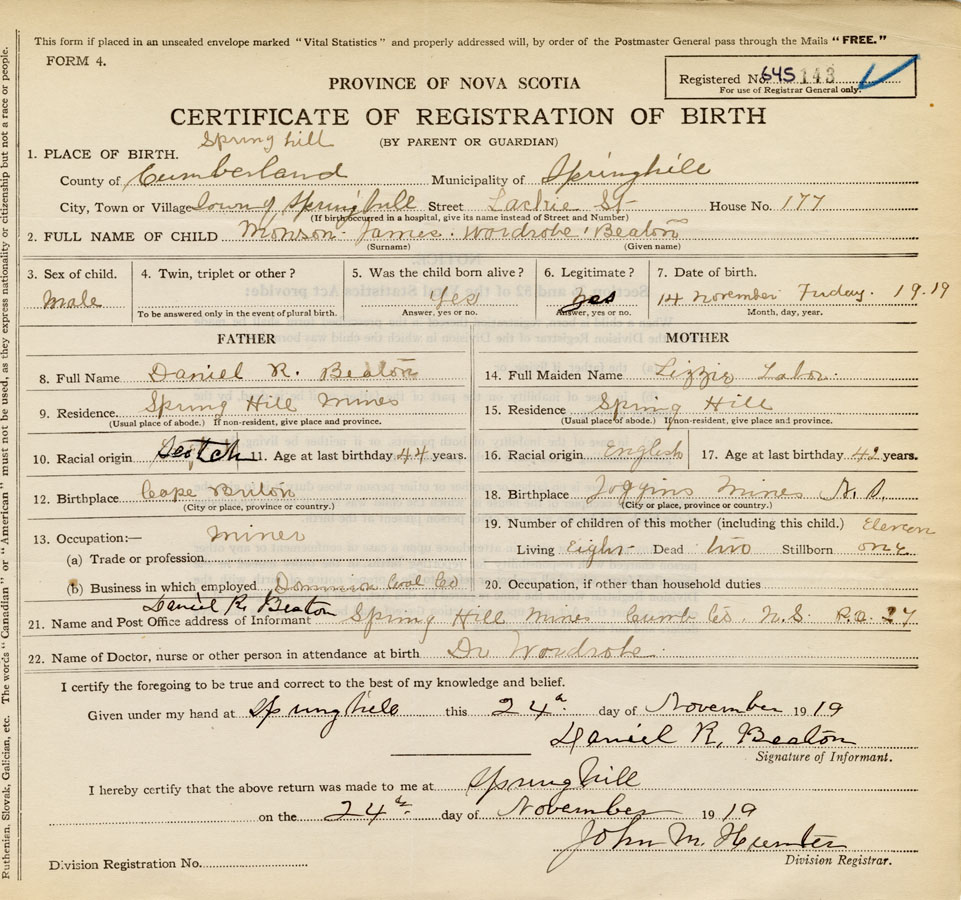 This form if placed in an unsealed envelope marked "Vital Statistics" and properly addressed will, by order of the Postmaster General pass through the Mails "FREE."
FORM 4.
Registered No. 645 143
For use of Registrar General only.
PROVINCE OF NOVA SCOTIA
CERTIFICATE OF REGISTRATION OF BIRTH
(BY PARENT OR GUARDIAN)
Spring hill
1. PLACE OF BIRTH.
County of Cumberland Municipality of Springhill
City, Town or Village Town of Springhill Street Lackie St House No. 177
(If birth occurred in a hospital, give its name instead of Street and Number)
2. FULL NAME OF CHILD Monson James Wordrobe Beaton
(Surname) (Given name)
3. Sex of child. 4. Twin, triplet or other? 5. Was the child born alive? 6. Legitimate? 7. Date of birth.
Male Yes Yes 14 November Friday. 19.19
To be answered only in the event of plural birth. Answer, yes or no. Answer, yes or no. Month, day, year.
FATHER
8. Full Name Daniel R. Beaton
9. Residence Spring Hill Mines
(Usual place of abode.) If non-resident, give place and province.
10. Racial origin Scotch 11. Age at last birthday 44 years.
12. Birthplace Cape Briton
(City or place, province or country.)
13. Occupation:— Miner
(a) Trade or profession
(b) Business in which employed Dominion Coal Co
MOTHER
14. Full Maiden Name Lizzie Labor
15. Residence Spring Hill
(Usual place of abode.) If non-resident, give place and province.
16. Racial origin English 17. Age at last birthday 42 years.
18. Birthplace Joggins Mines N. S.
(City or place, province or country.)
19. Number of children of this mother (including this child.) Eleven
Living Eight Dead two Stillborn one
20. Occupation, if other than household duties
Daniel R. Beaton
21. Name and Post Office address of Informant Spring Hill Mines Cumb Co. N.S. P.O. 27
22. Name of Doctor, nurse or other person in attendance at birth Dr Wordrobe
I certify the foregoing to be true and correct to the best of my knowledge and belief.
Given under my hand at Springhill this 24th day of November 1919
Daniel R. Beaton
Signature of Informant.
I hereby certify that the above return was made to me at Springhill
on the 24th day of November 1919
John M. Hunter
Division Registrar.
Division Registration No.
Ruthenian, Slovak, Galician, etc. The words "Canadian" or "American" must not be used, as they express nationality or citizenship but not a race or people.